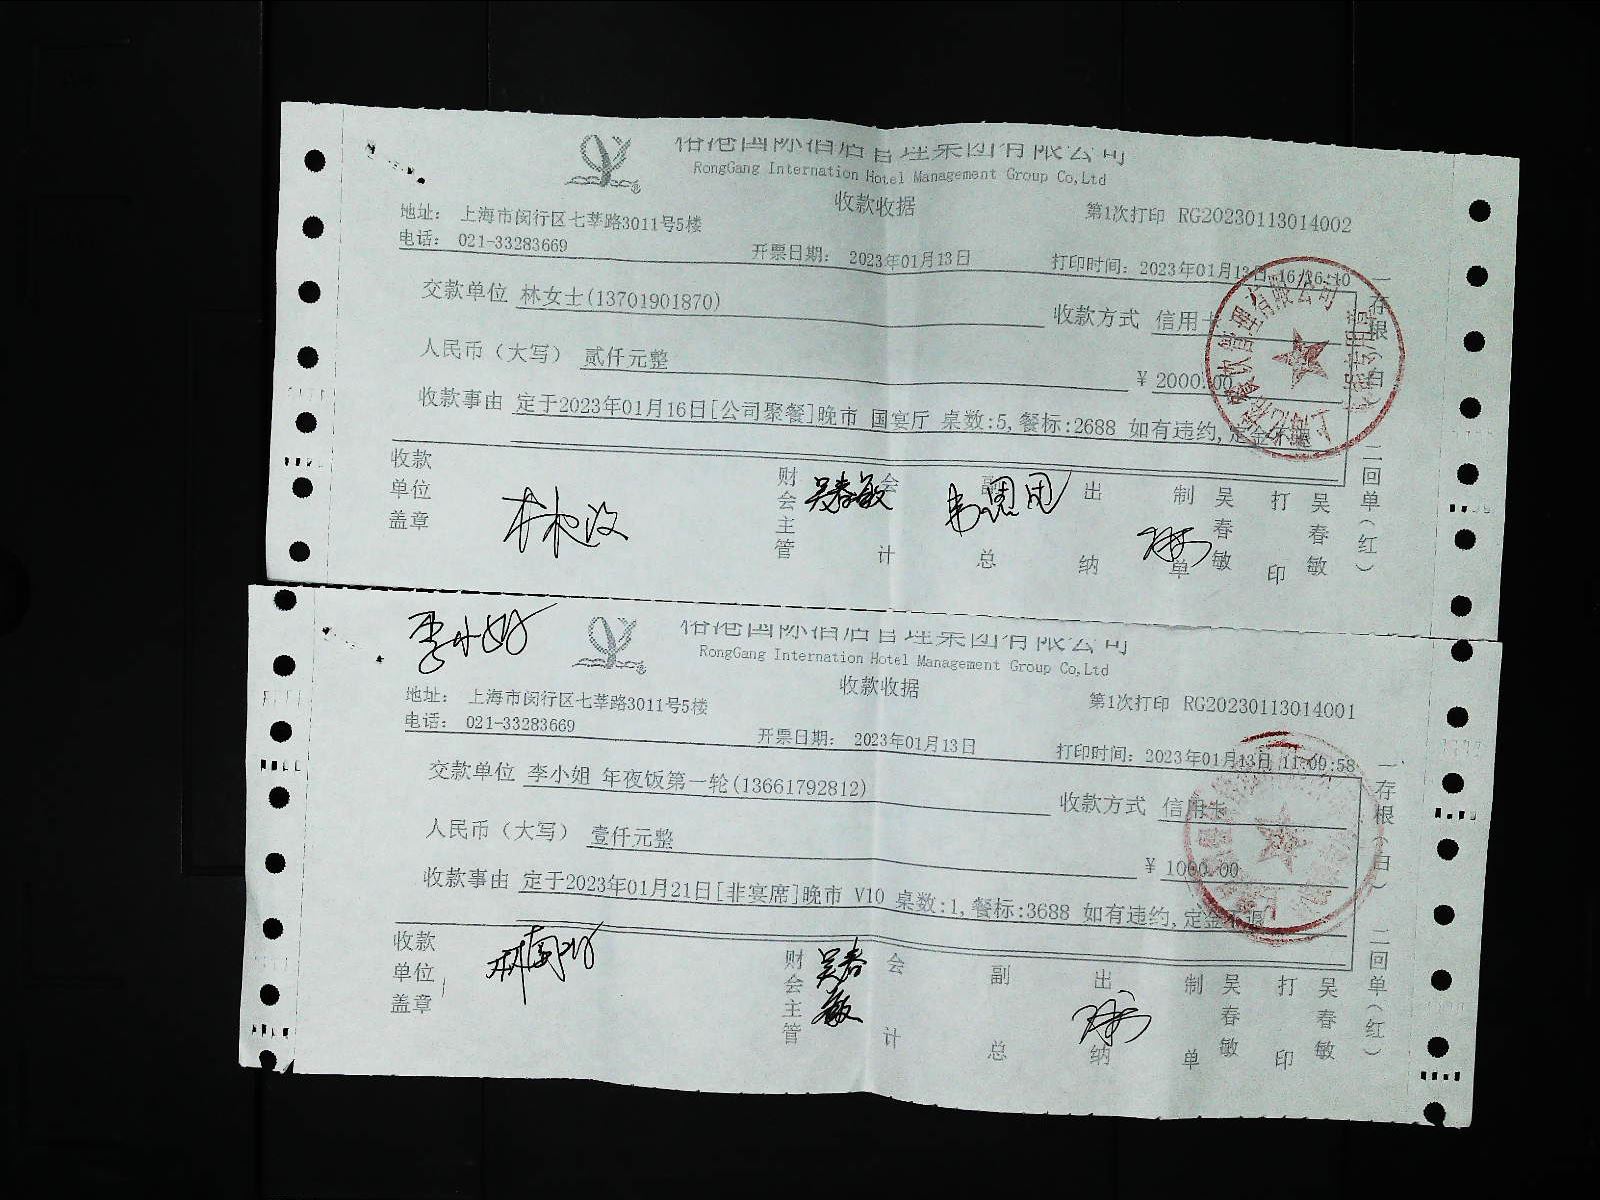 国际酒店管理集团有限公司
RongGang Internation Hotel Management Group Co,Ltd
收款收据
第1次打印 RG20230113014002
地址: 上海市闵行区七莘路3011号5楼
电话: 021-33283669
开票日期: 2023年01月13日
打印时间: 2023年01月13日 16:26:10
交款单位 林女士(13701901870)
收款方式 信用卡
人民币（大写） 贰仟元整
¥ 2000.00
收款事由 定于2023年01月16日[公司聚餐]晚市 国宴厅 桌数:5,餐标:2688 如有违约,定金不退
一存根(白) 二回单(红)
收款单位盖章
财会主管 吴春敏
会计
副总
出纳
制单 吴春敏
打印 吴春敏
国际酒店管理集团有限公司
RongGang Internation Hotel Management Group Co,Ltd
收款收据
第1次打印 RG20230113014001
地址: 上海市闵行区七莘路3011号5楼
电话: 021-33283669
开票日期: 2023年01月13日
打印时间: 2023年01月13日 11:09:58
交款单位 李小姐 年夜饭第一轮(13661792812)
收款方式 信用卡
人民币（大写） 壹仟元整
¥ 1000.00
收款事由 定于2023年01月21日[非宴席]晚市 V10 桌数:1,餐标:3688 如有违约,定金不退
一存根(白) 二回单(红)
收款单位盖章
财会主管 吴春敏
会计
副总
出纳
制单 吴春敏
打印 吴春敏